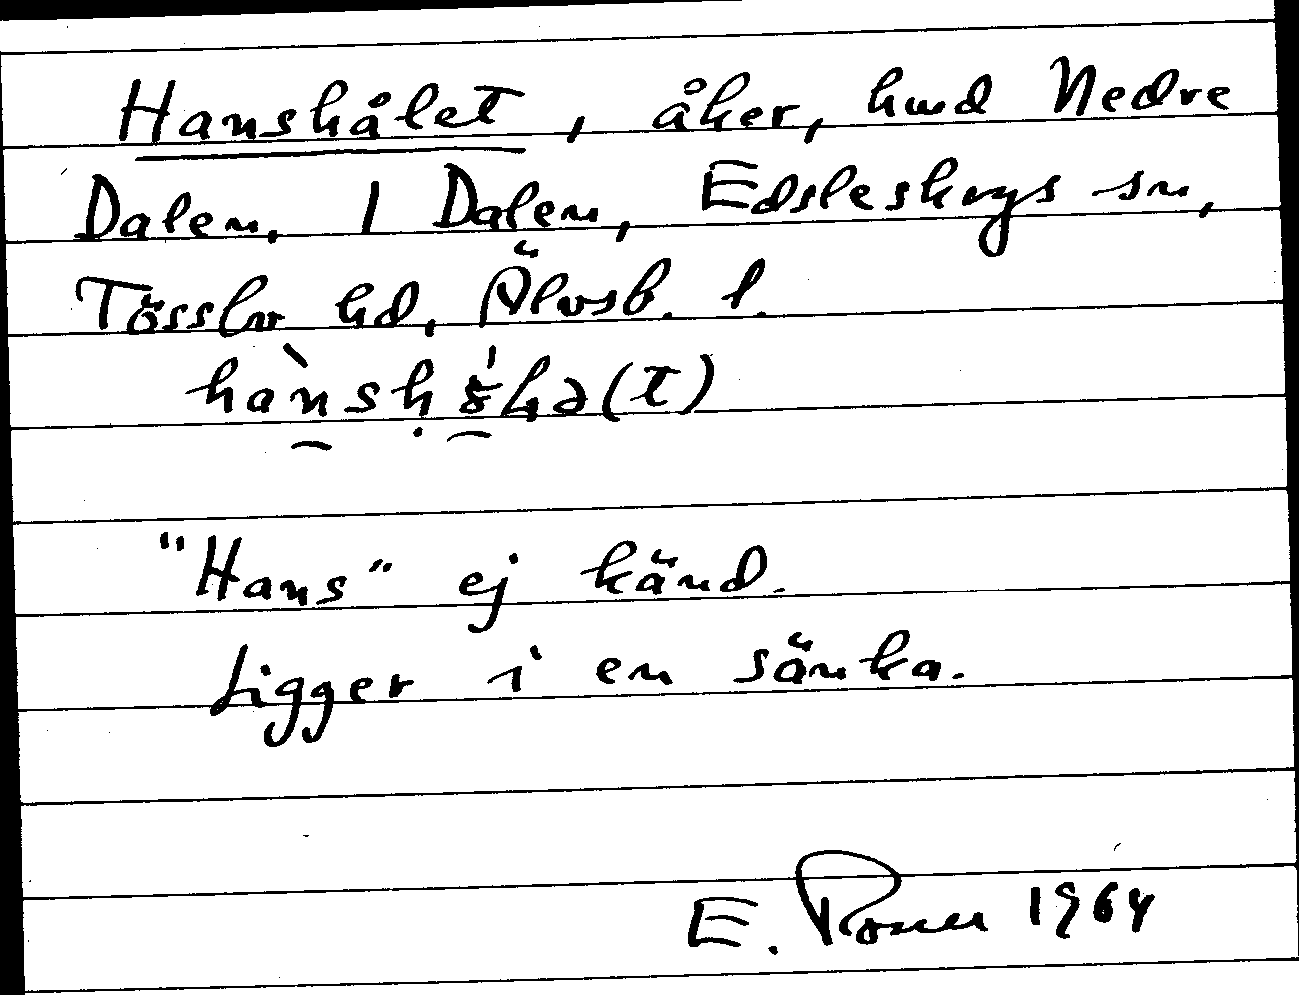 Hanshålet, åker, hmd Nedre
Dalen, 1 Dalen, Edsleskogs sn,
Tössbo hd, Älvsb. l.
"Hans" ej känd.
Ligger i en sänka.
E. 1964